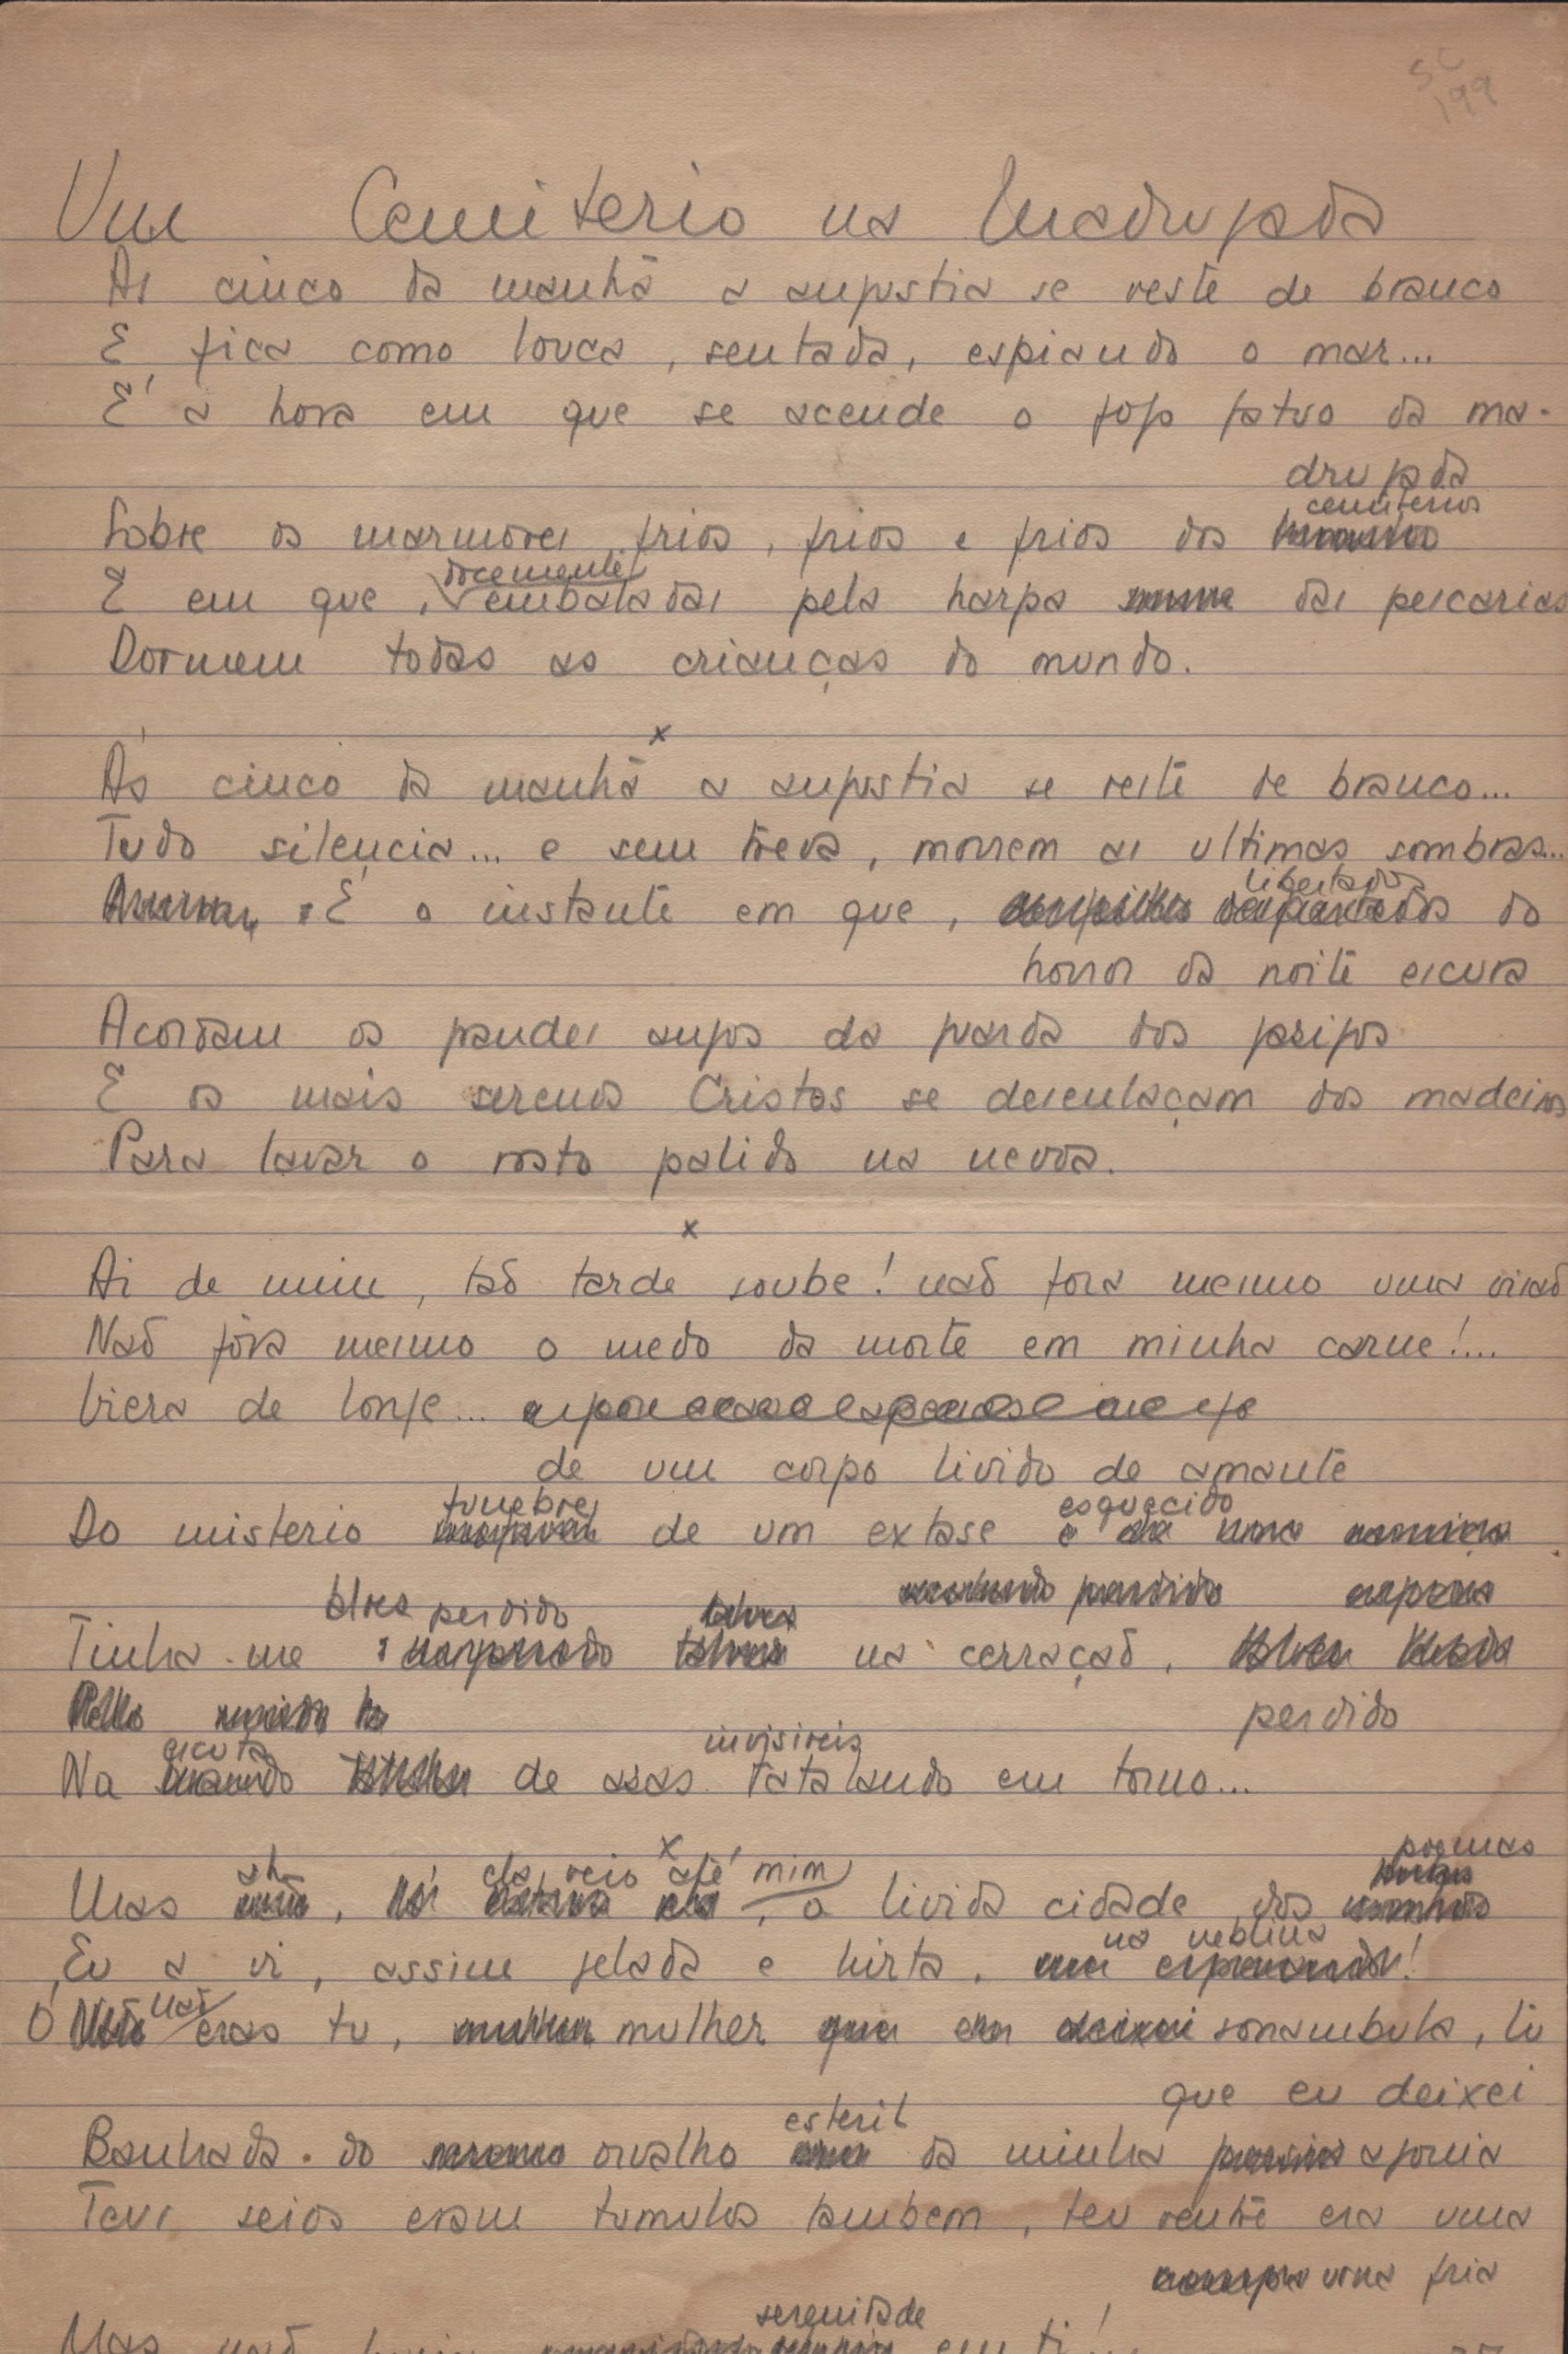 SC
199
Um Cemiterio na Madrugada
Ás cinco da manhã a angustia se veste de branco
E fica como louca, sentada, espiando o mar...
É a hora em que se acende o fogo fatuo da ma-
drugada
cemiterios
Sobre os marmores frios, frios e frios dos
docemente
E em que, embaladas pela harpa das pescarias
Dormem todas as crianças do mundo.
x
Ás cinco da manhã a angustia se veste de branco...
Tudo silencia... e sem treva, morrem as ultimas sombras...
libertados
É o instante em que, do
horror da noite escura
Acordam os grandes anjos da guarda dos jazigos
E os mais serenos Cristos se desenlaçam dos madeiros
Para lavar o rosto palido na nevoa.
x
Ai de mim, taõ tarde soube! naõ fora mesmo uma visaõ
Naõ fôra mesmo o medo da morte em minha carne!....
Viera de longe...
de um corpo livido de amante
funebre esquecido
Do misterio de um extase e
perdido
Tinha-me na cerraçaõ,
perdido
escuta invisiveis
Na de asas tatalando em torno...
x
poemas
ah ela veio até mim
Mas , , a livida cidade dos
na neblina
Eu a vi, assim gelada e hirta, !
naõ
Ó eras tu, mulher sonambula, tu
que eu deixei
esteril
Banhada do orvalho da minha agonia
Teus seios eram tumulos tambem, teu ventre era uma
urna fria
serenidade
Mas naõ havia em ti!